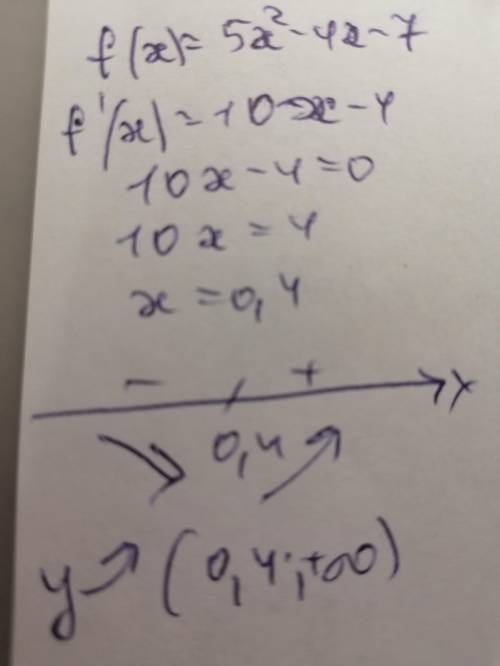 f(x)=5x²-4x-7
f'(x)=10x-4
10x-4=0
10x=4
x=0,4
- + x
0,4
y↗(0,4;+∞)